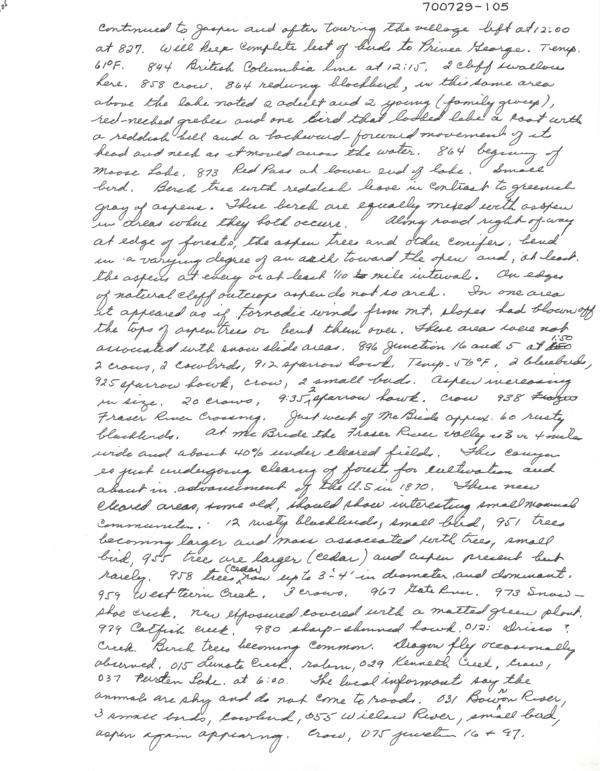 700729-105
continued to Jasper and after touring the village left at 12:00
at 827. Will keep complete list of birds to Prince George. Temp.
61°F. 844 British Columbia line at 12:15. 2 cliff swallows
here. 858 crow. 864 redwing blackbird, in this same area
above the lake noted 2 adult and 2 young (family group),
red-necked grebes and one bird that looked like a coot with
a reddish bill and a backward-forward movement of it
head and neck as it moved across the water. 864 begining of
Moose Lake. 873 Red Pass at lower end of lake. Small
bird. Birch tree with reddish leave in contrast to greenish
gray of aspens. These birch are equally mixed with aspen
in areas where they both occur. Along road right of way
at edge of forests, the aspen trees and other conifers, bend
in a varying degree of an arch toward the open and, at least
the aspens at every or at least 1/10 to mile interval. On edges
of natural cliff outcrops aspen do not so arch. In one area
it appeared as if tornadic winds from mt. slopes had blown off
the tops of aspen trees or bent them over. These areas were not
associated with snow slide areas. 896 junction 16 and 5 at 1:50
2 crows, 2 cowbirds, 912 sparrow hawk. Temp. 56°F, 2 bluebirds,
925 sparrow hawk, crow, 2 small bird. Aspen increasing
in size. 20 crows, 935, 2 sparrow hawk. crow 938
Fraser River Crossing. Just west of McBride approx. 60 rusty
blackbirds. At McBride the Fraser River Valley is 3 or 4 miles
wide and about 40% under cleared fields. This canyon
is just undergoing clearing of forest for cultivation and
about in advancement of the U.S in 1870. These new
cleared areas, some old, should show interesting small mammal
communities. 12 rusty blackbirds, small bird, 951 trees
becoming larger and moss associated with trees, small
bird, 955 tree are larger (cedar) and aspen present but
rarely. 958 trees (cedar) now up to 3'-4' in diameter and dominant.
959 West Twin Creek. 3 crows. 967 Goat River. 973 Snow-
shoe creek. New exposures covered with a matted green plant.
979 Catfish Creek. 980 sharp-shinned hawk. 012: Driscо ?
Creek. Birch trees becoming common. Dragon fly occasionally
observed. 015 Lunate Creek. robin, 029 Kenneth Creek, crow,
037 Purden Lake. at 6:00. The local informant say the
animals are shy and do not come to roads. 031 Bowron River,
3 small birds, cowbird, 055 Willow River, small bird,
aspen again appearing. Crow, 075 junction 16 + 97.